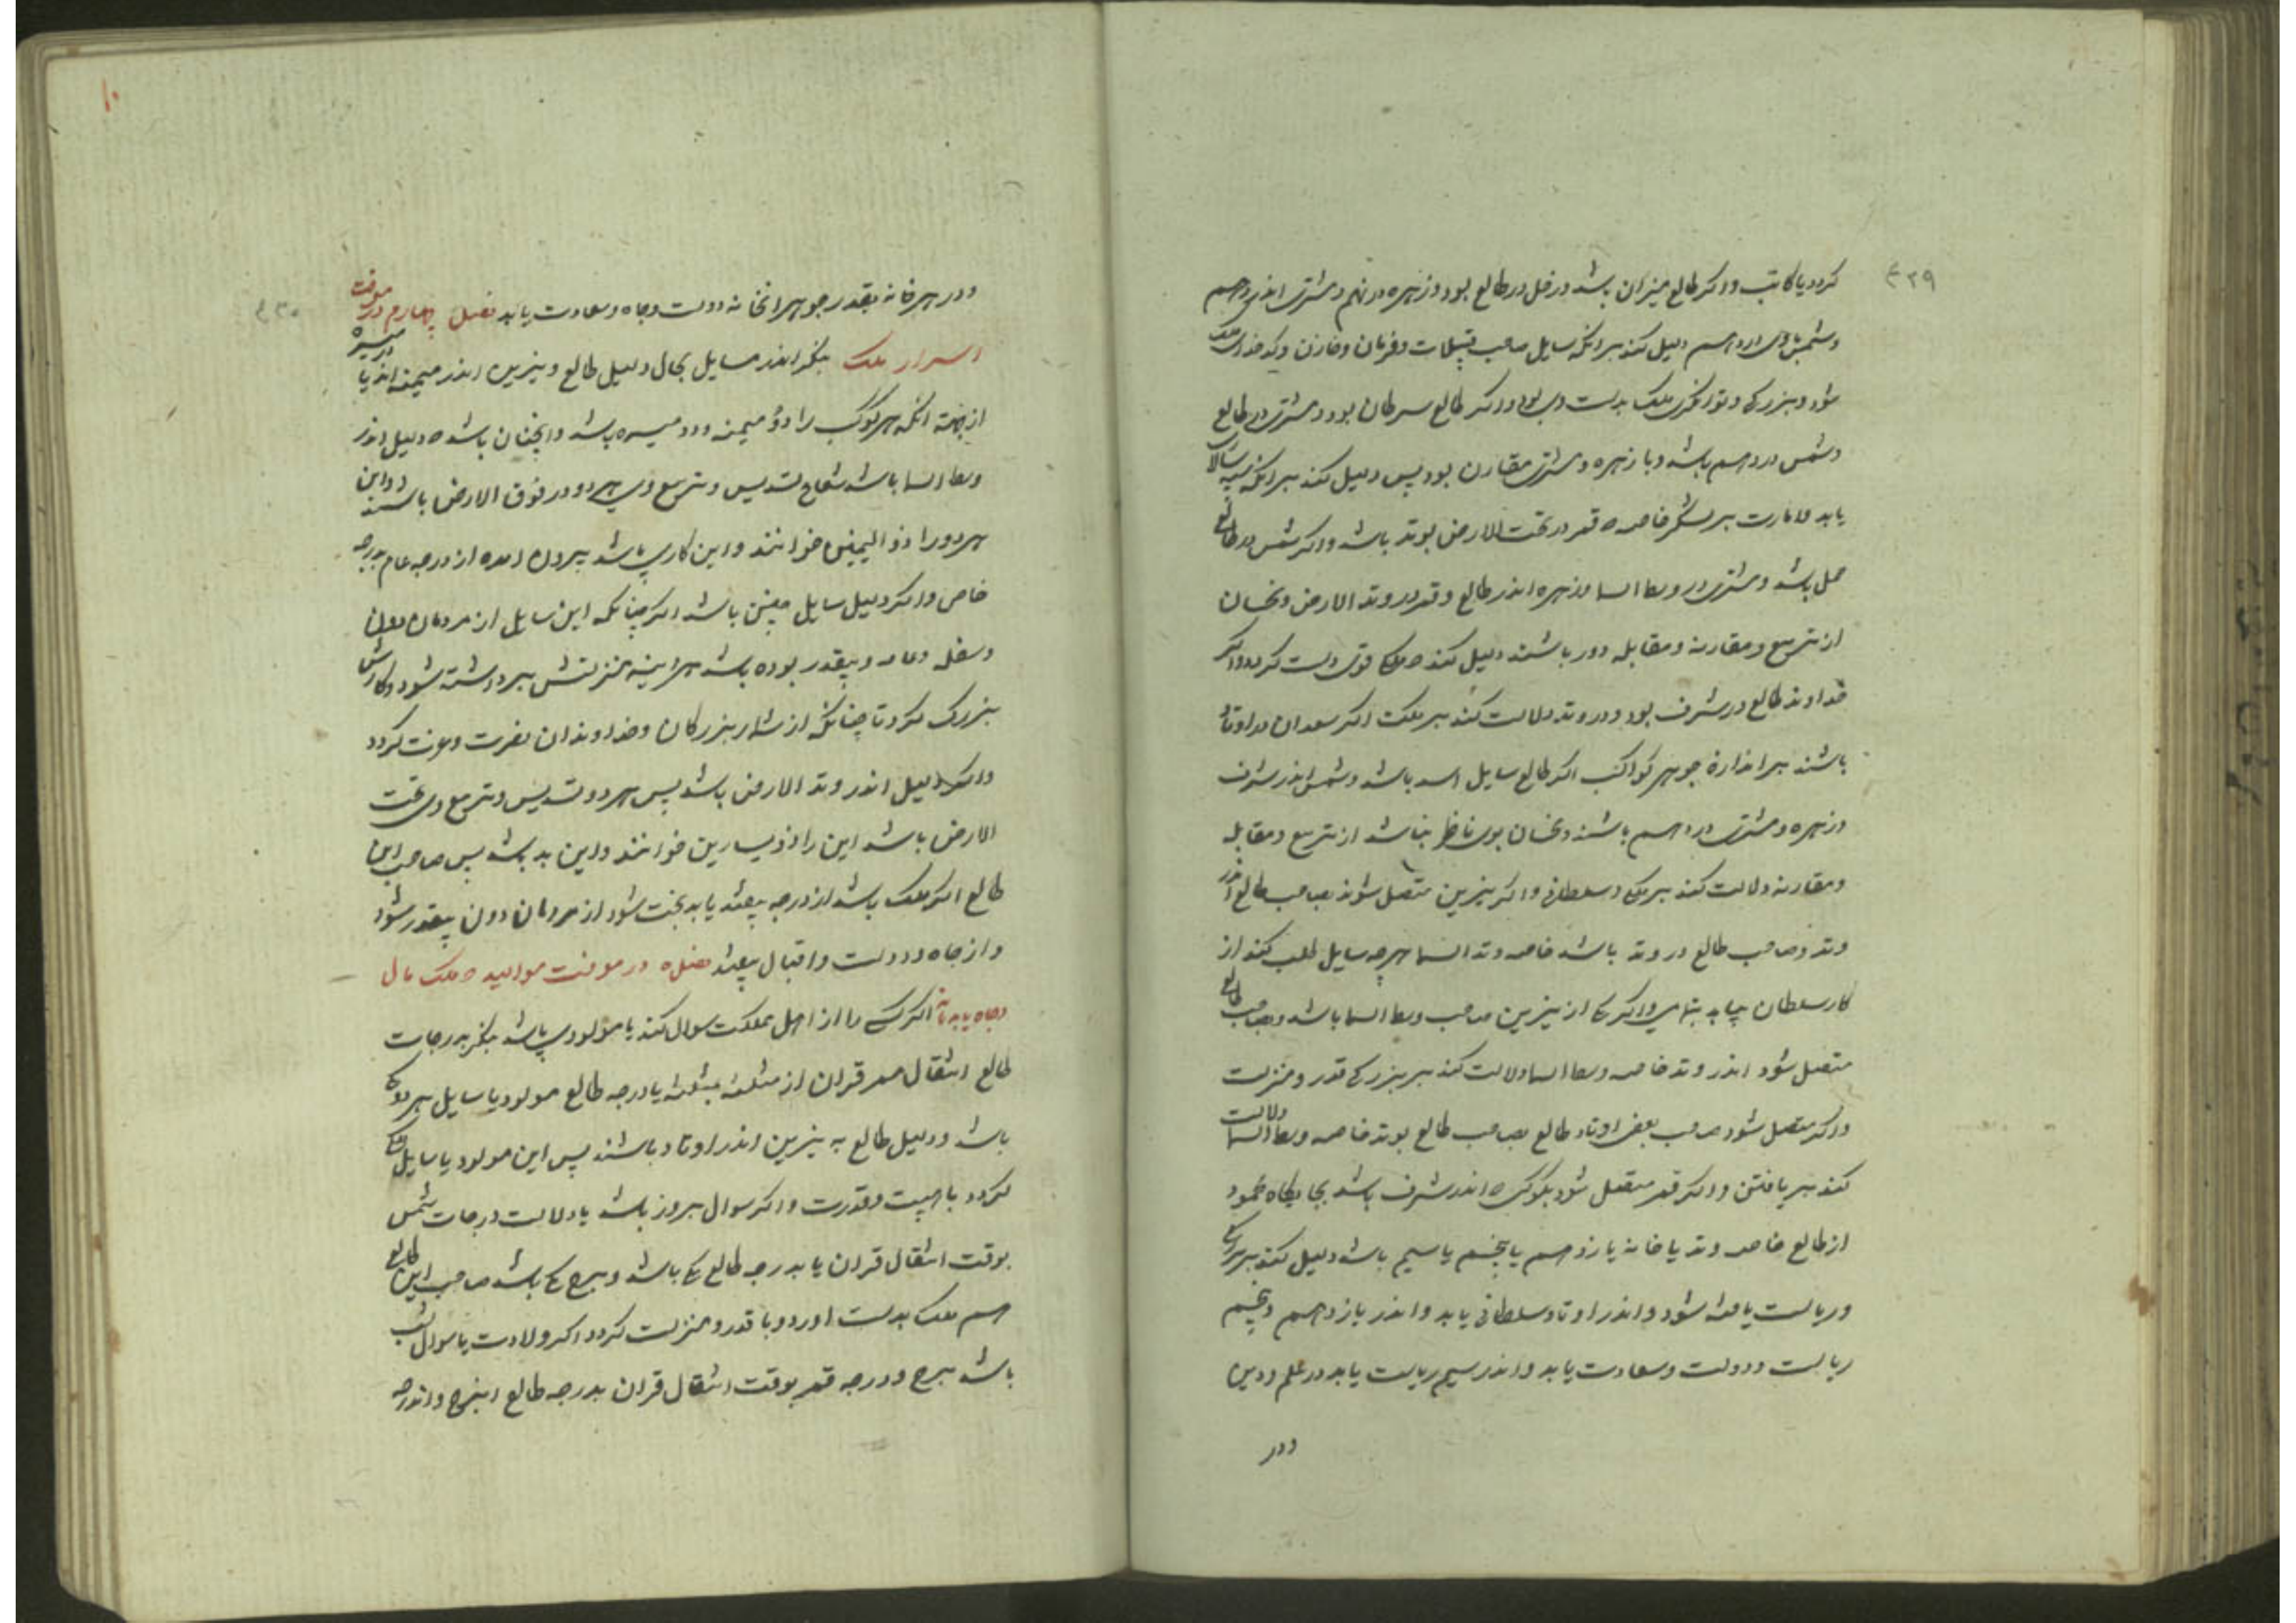 ۴۲۹
کردد یا کاتب و اکر طالع میزان باشد و زحل در طالع بود و زهره در نهم و مشتری اندر دهم
و شمس با وی در دهم دلیل کند بر انکه سایل صاحب و فرمان و خازن و کدخدای ملک
شود و بزرکی و توانکری ملک بدست وی بود و اکر طالع سرطان بود و مشتری در طالع
و شمس در دهم باشد و با زهره و مشتری مقارن بود پس دلیل کند بر انکه سپه سالاری
یابد و امارت بر لشکر خاصه که قمر در تحت الارض بوتد باشد و اکر شمس در طالع
حمل باشد و مشتری در وسط السما و زهره اندر طالع و قمر در وتد الارض و نحسان
از تربیع و مقارنه و مقابله دور باشند دلیل کند که ملک قوی دست کردد و اکر
خداوند طالع در شرف بود و در وتد دلالت کند بر ملکت اکر سعدان در اوتاد
باشند بر اندازهٔ جوهر کواکب اکر طالع سایل اسد باشد و شمس اندر شرف
و زهره و مشتری در دهم باشند و نحسان بوی ناظر نباشد از تربیع و مقابله
و مقارنه دلالت کند بر ملک و سلطانی و اکر نیرین متصل شوند بصاحب طالع اندر
وتد و صاحب طالع در وتد باشد خاصه وتد السما هرچه سایل طلب کند از
کار سلطان بیابد بتمامی و اکر یکی از نیرین صاحب وسط السما باشد و بصاحب طالع
متصل شود اندر وتد خاصه وسط السما دلالت کند بر بزرکی قدر و منزلت
و اکر متصل شود صاحب بعضی اوتاد طالع بصاحب طالع بوتد خاصه وسط السما دلالت
کند بر یافتن و اکر قمر متصل شود بکوکبی که اندر شرف باشد بجایکاه محمود
از طالع خاصه وتد یا خانه یازدهم یا پنجم یا سیم باشد دلیل کند بر بزرکی
و ریاست یافته شود و اندر اوتاد سلطانی یابد و اندر یازدهم و پنجم
ریاست و دولت و سعادت یابد و اندر سیم ریاست یابد در علم و دین
ودر
۱۰
۴۳۰
ودر هر خانه بقدر جوهر انخانه دولت و جاه و سعادت یابد فصل چهارم در معرفت
اسرار ملک بنکر اندر مسایل بحال دلیل طالع و نیرین اندر میمنه اند یا در میسره
از جهته انکه هر کوکب را دو میمنه و دو میسره باشد و انچنان باشد که دلیل اندر
وسط السما باشد شعاع تسدیس و تربیع وی هر دو در فوق الارض باشند و این
هر دو را ذو الیمینین خوانند و این کاری باشد بیرون امده از درجه عام بدرجه
خاص و اکر دلیل سایل چنین باشد اکر چنانکه این سایل از مردمان دون
و سفله و عامه و بیقدر بوده باشد هر اینه منزلتش برداشته شود و کارش
بزرک کردد تا چنانکه از شمار بزرکان و خداوندان نصرت و عزت کردد
و اکر دلیل اندر وتد الارض باشد پس هر دو تسدیس و تربیع وی تحت
الارض باشد این را ذو یسارین خوانند و این بد باشد پس صاحب این
طالع اکر ملک باشد از درجه بیفتد یا بدبخت شود از مردمان دون بیقدر شود
و از جاه و دولت و اقبال بیفتد فصل ۵ در معرفت موالید که ملک مال
و جاه یابد یا نه اکر کسی را از اهل مملکت سوال کند یا مولودی باشد بنکر بدرجات
طالع انتقال ممر قران از مثلثه بمثلثه یا درجه طالع مولود یا سایل هر دو یکی
باشد و دلیل طالع به نیرین اندر اوتاد باشند پس این مولود یا سایل ملک
کردد با هیبت و قدرت و اکر سوال بروز باشد یا دلالت درجات شمس
بوقت انتقال قران یا بدرجه طالع یکی باشد و برج یکی باشد صاحب این طالع
هم ملک بدست اورد و با قدر و منزلت کردد اکر ولادت یا سوال بشب
باشد برج و درجه قمر بوقت انتقال قران بدرجه طالع اینبرج و اندرجه